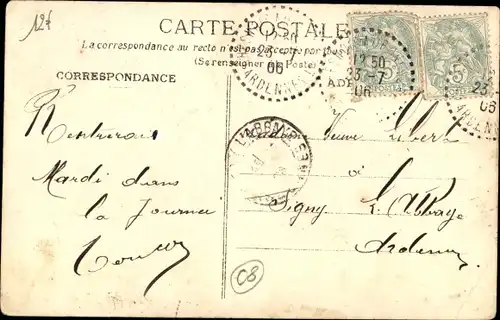 12f
CARTE POSTALE
La correspondance au recto n'est pas acceptée par tous
(Se renseigner à la Poste)
CORRESPONDANCE
12 50
23
06
ARDENNES
12 50
23-7
06
5
23
06
ARDENNES
L'ABBAYE
Madame Veuve Libert
à
Signy L'Abbaye
Ardennes
Rentrerai
Mardi dans
la journée
08